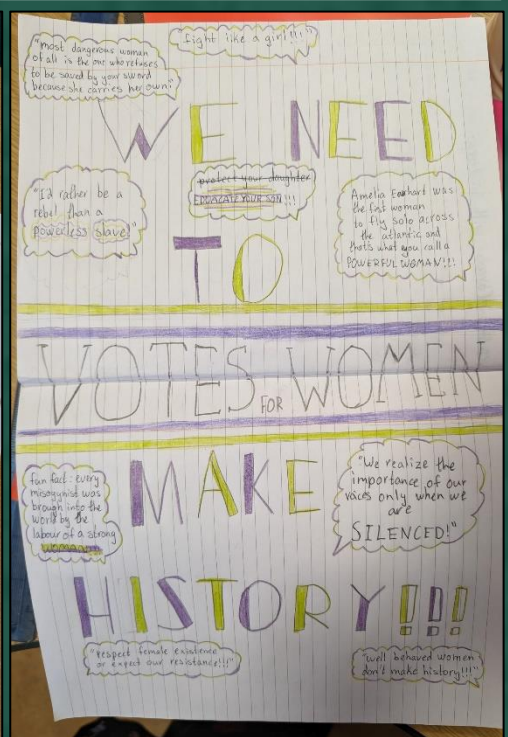 "most dangerous woman
of all is the one who refuses
to be saved by your sword
because she carries her own!"
fight like a girl!!!"
WE NEED
"I'd rather be a
rebel than a
powerless slave"
protect your daughter
EDUCATE YOUR SON!!!
Amelia Earhart was
the fist woman
to fly solo across
the atlantic and
thats what you call a
POWERFUL WOMAN!!!
TO
VOTES FOR WOMEN
MAKE
fun fact: every
misogynist was
brough into the
world by the
labour of a strong
"We realize the
importance of our
voices only when we
are
SILENCED!"
HISTORY!!!
"respect female existence
or expect our resistance!!!"
"well behaved women
don't make history!!!"